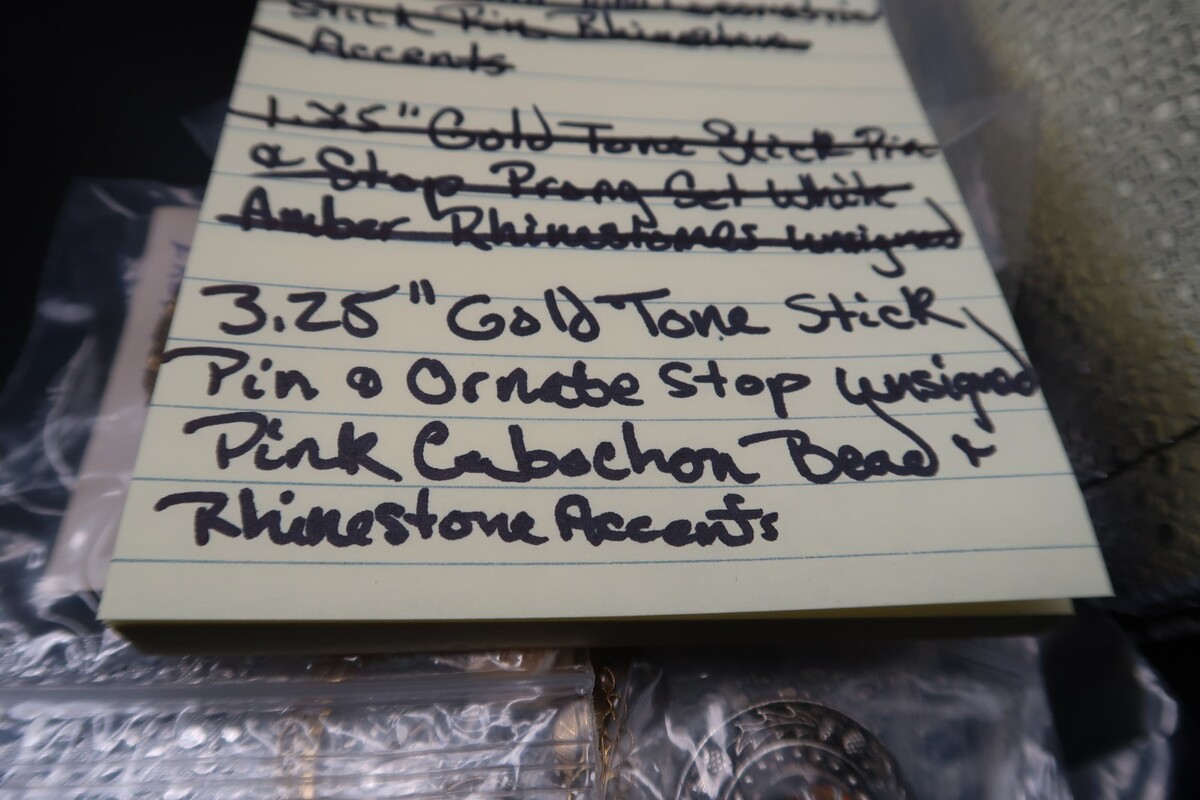 Stick Pin Rhinestone
Accents
1.25" Gold Tone Stick Pin
& Stop Prong Set White
Amber Rhinestones unsigned
3.25" Gold Tone Stick
Pin & Ornate Stop unsigned
Pink Cabochon Bead &
Rhinestone Accents